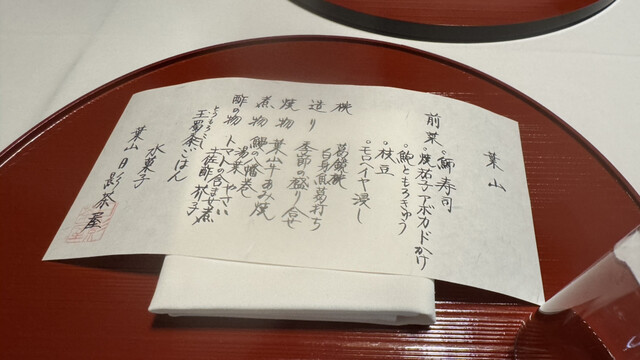 葉山
前菜 ○鰤寿司
○焼茄子アボカドかけ
○鮑ともろきゅう
○枝豆
○モロヘイヤ浸し
椀
白身魚葛打ち
造り 季節の盛り合せ
焼物 葉山牛あみ焼
煮物 鰻八幡巻
湯葉 やさい
トマトの含ませ煮
酢の物
土佐酢
とうもろこし
玉蜀黍ごはん
水菓子
葉山 日影茶屋